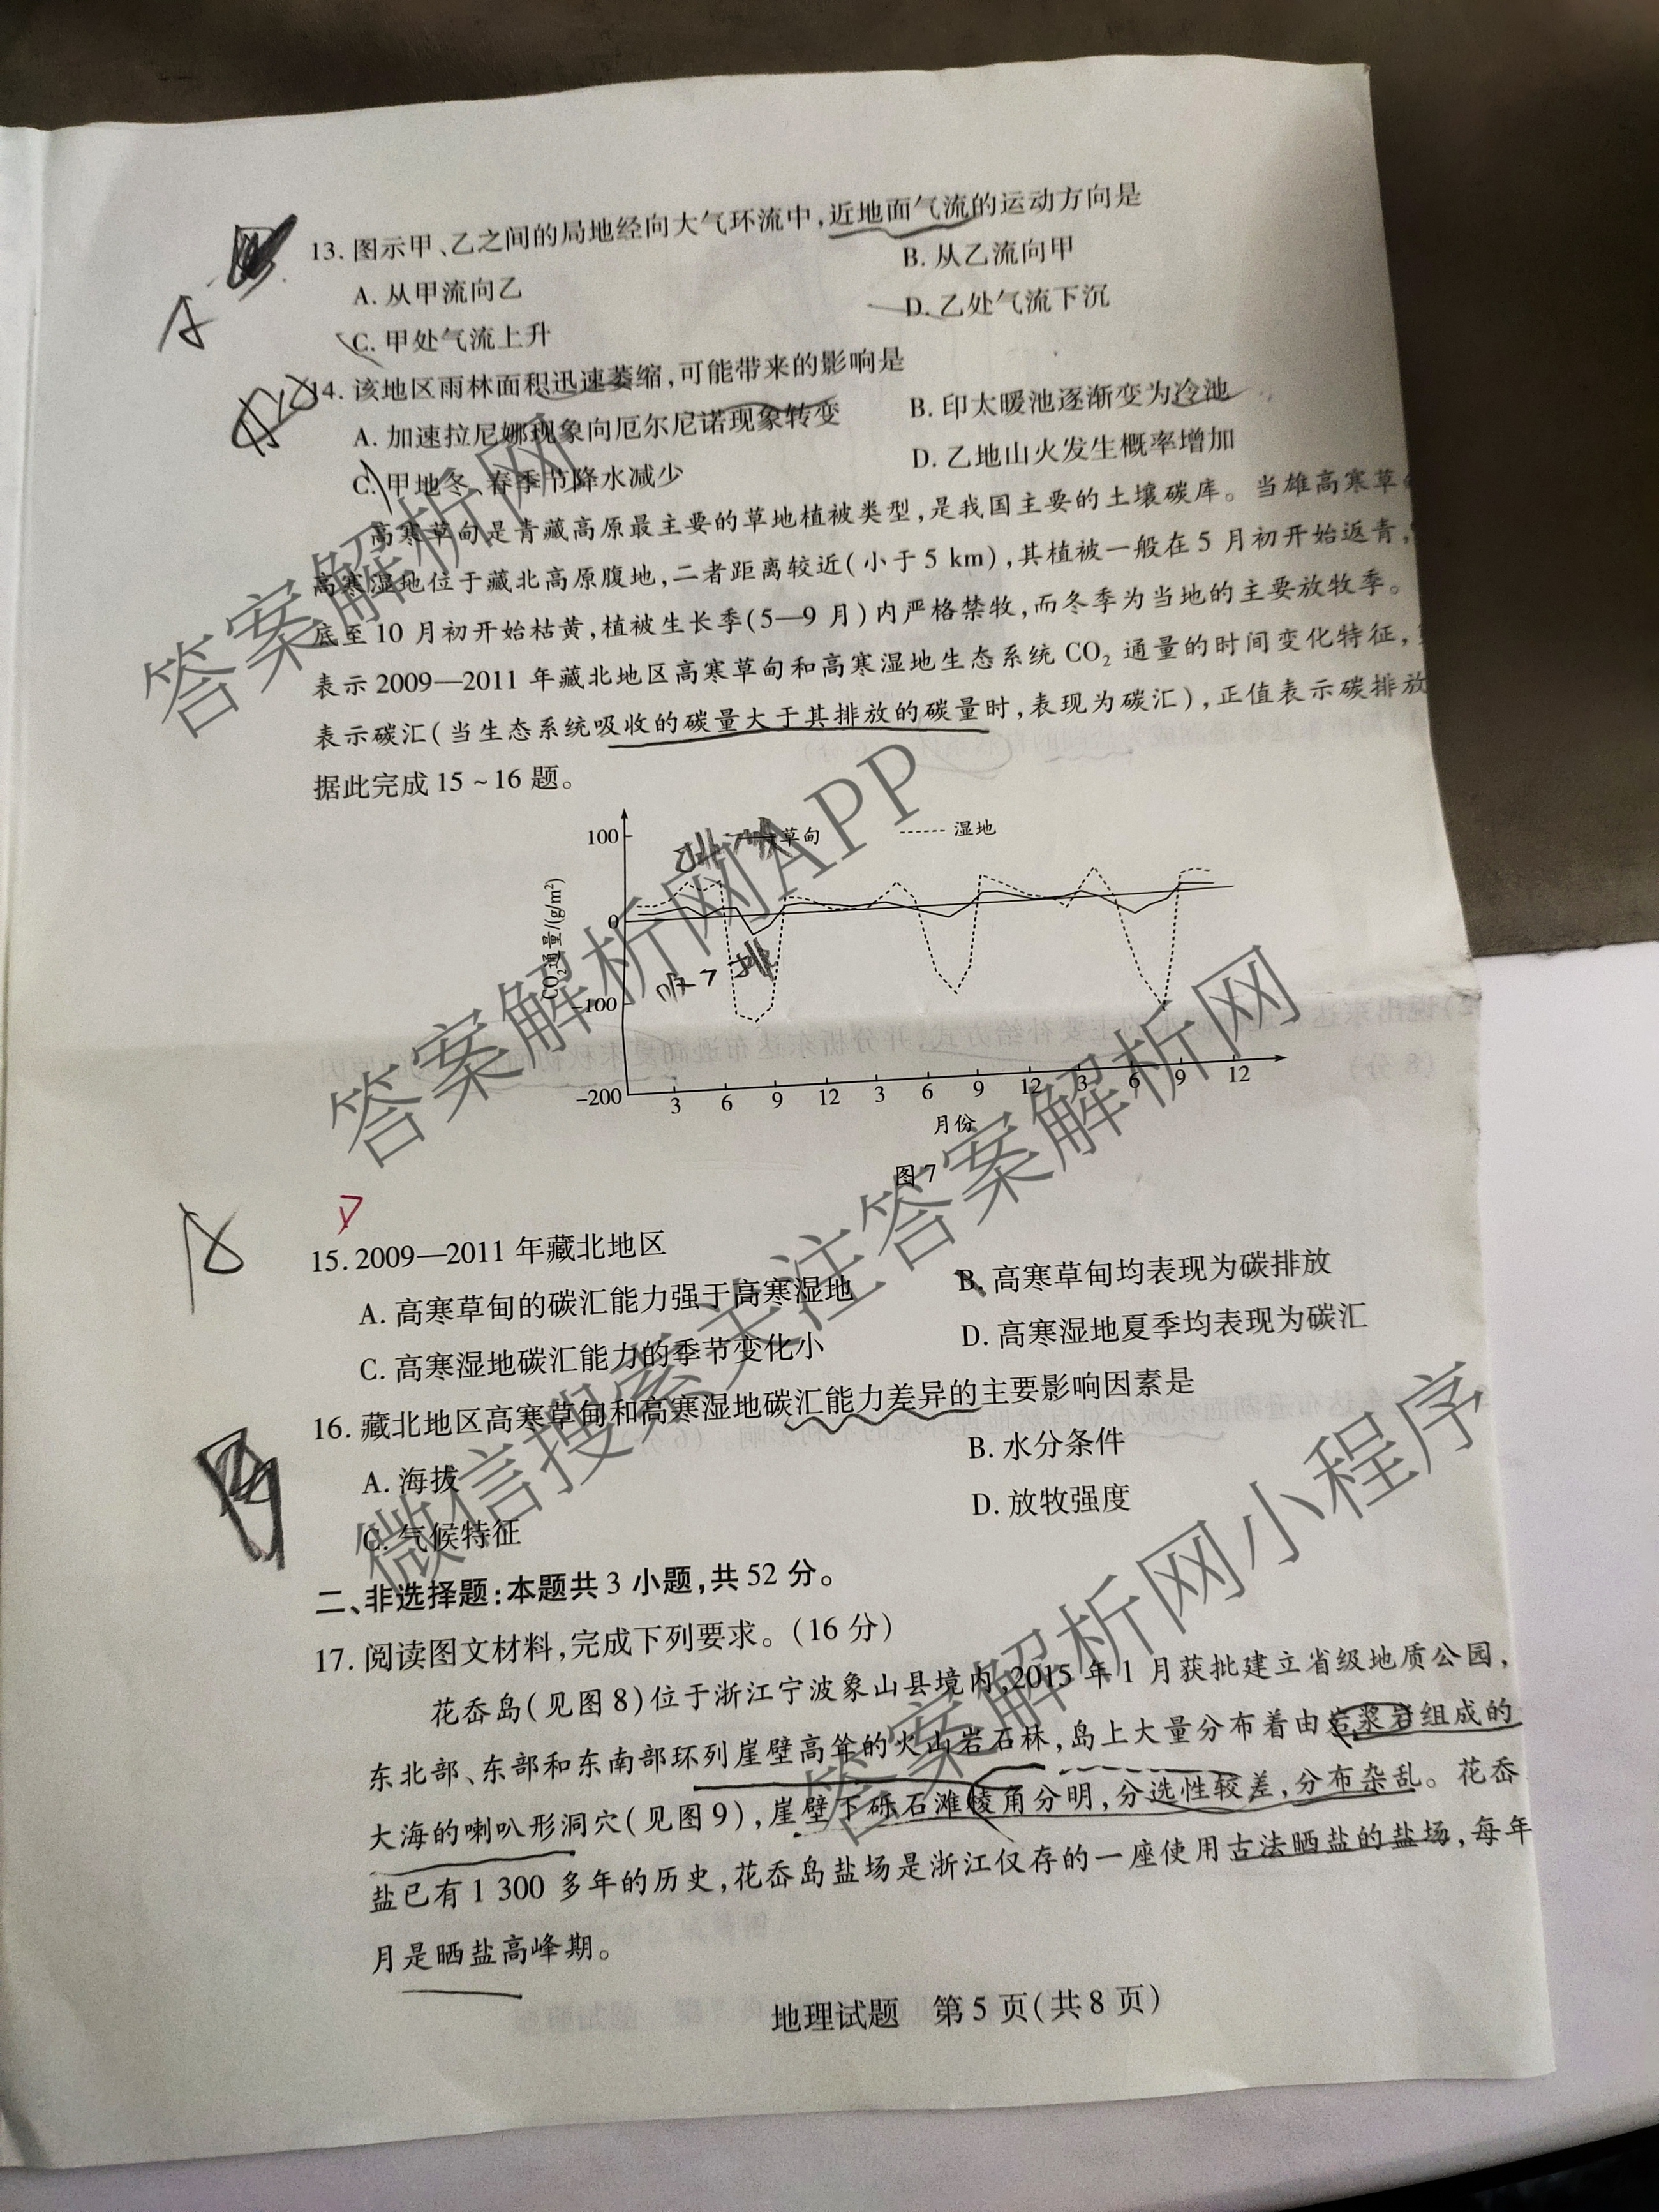 13. 图示甲、乙之间的局地经向大气环流中,近地面气流的运动方向是
A. 从甲流向乙
B. 从乙流向甲
C. 甲处气流上升
D. 乙处气流下沉
A
14. 该地区雨林面积迅速萎缩,可能带来的影响是
A. 加速拉尼娜现象向厄尔尼诺现象转变
B. 印太暖池逐渐变为冷池
C. 甲地冬、春季节降水减少
D. 乙地山火发生概率增加
高寒草甸是青藏高原最主要的草地植被类型,是我国主要的土壤碳库。当雄高寒草
高寒湿地位于藏北高原腹地,二者距离较近(小于5 km),其植被一般在5月初开始返青,
底至10月初开始枯黄,植被生长季(5—9月)内严格禁牧,而冬季为当地的主要放牧季。
表示2009—2011年藏北地区高寒草甸和高寒湿地生态系统CO₂通量的时间变化特征,
表示碳汇(当生态系统吸收的碳量大于其排放的碳量时,表现为碳汇),正值表示碳排放
据此完成15~16题。
草甸 湿地
CO₂通量/(g/m²)
100
0
吸>排
-100
-200
3 6 9 12 3 6 9 12 3 6 9 12
月份
图7
15. 2009—2011年藏北地区
A. 高寒草甸的碳汇能力强于高寒湿地
B. 高寒草甸均表现为碳排放
C. 高寒湿地碳汇能力的季节变化小
D. 高寒湿地夏季均表现为碳汇
16. 藏北地区高寒草甸和高寒湿地碳汇能力差异的主要影响因素是
A. 海拔
B. 水分条件
C. 气候特征
D. 放牧强度
二、非选择题:本题共3小题,共52分。
17. 阅读图文材料,完成下列要求。(16分)
花岙岛(见图8)位于浙江宁波象山县境内,2015年1月获批建立省级地质公园,
东北部、东部和东南部环列崖壁高耸的火山岩石林,岛上大量分布着由岩浆岩组成的
大海的喇叭形洞穴(见图9),崖壁下砾石滩棱角分明,分选性较差,分布杂乱。花岙
盐已有1 300多年的历史,花岙岛盐场是浙江仅存的一座使用古法晒盐的盐场,每年
月是晒盐高峰期。
地理试题 第5页(共8页)
答案解析网
答案解析网APP
微信搜索关注答案解析网
答案解析网小程序